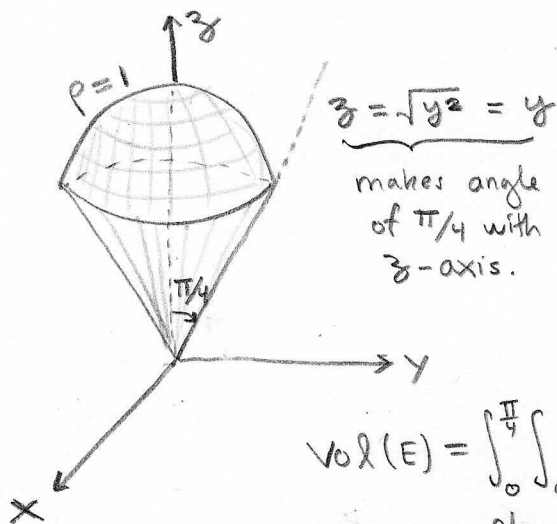 z
ρ=1
z = √y² = y
makes angle
of π/4 with
z-axis.
π/4
y
x
Vol(E) = ∫₀^(π/4) ∫